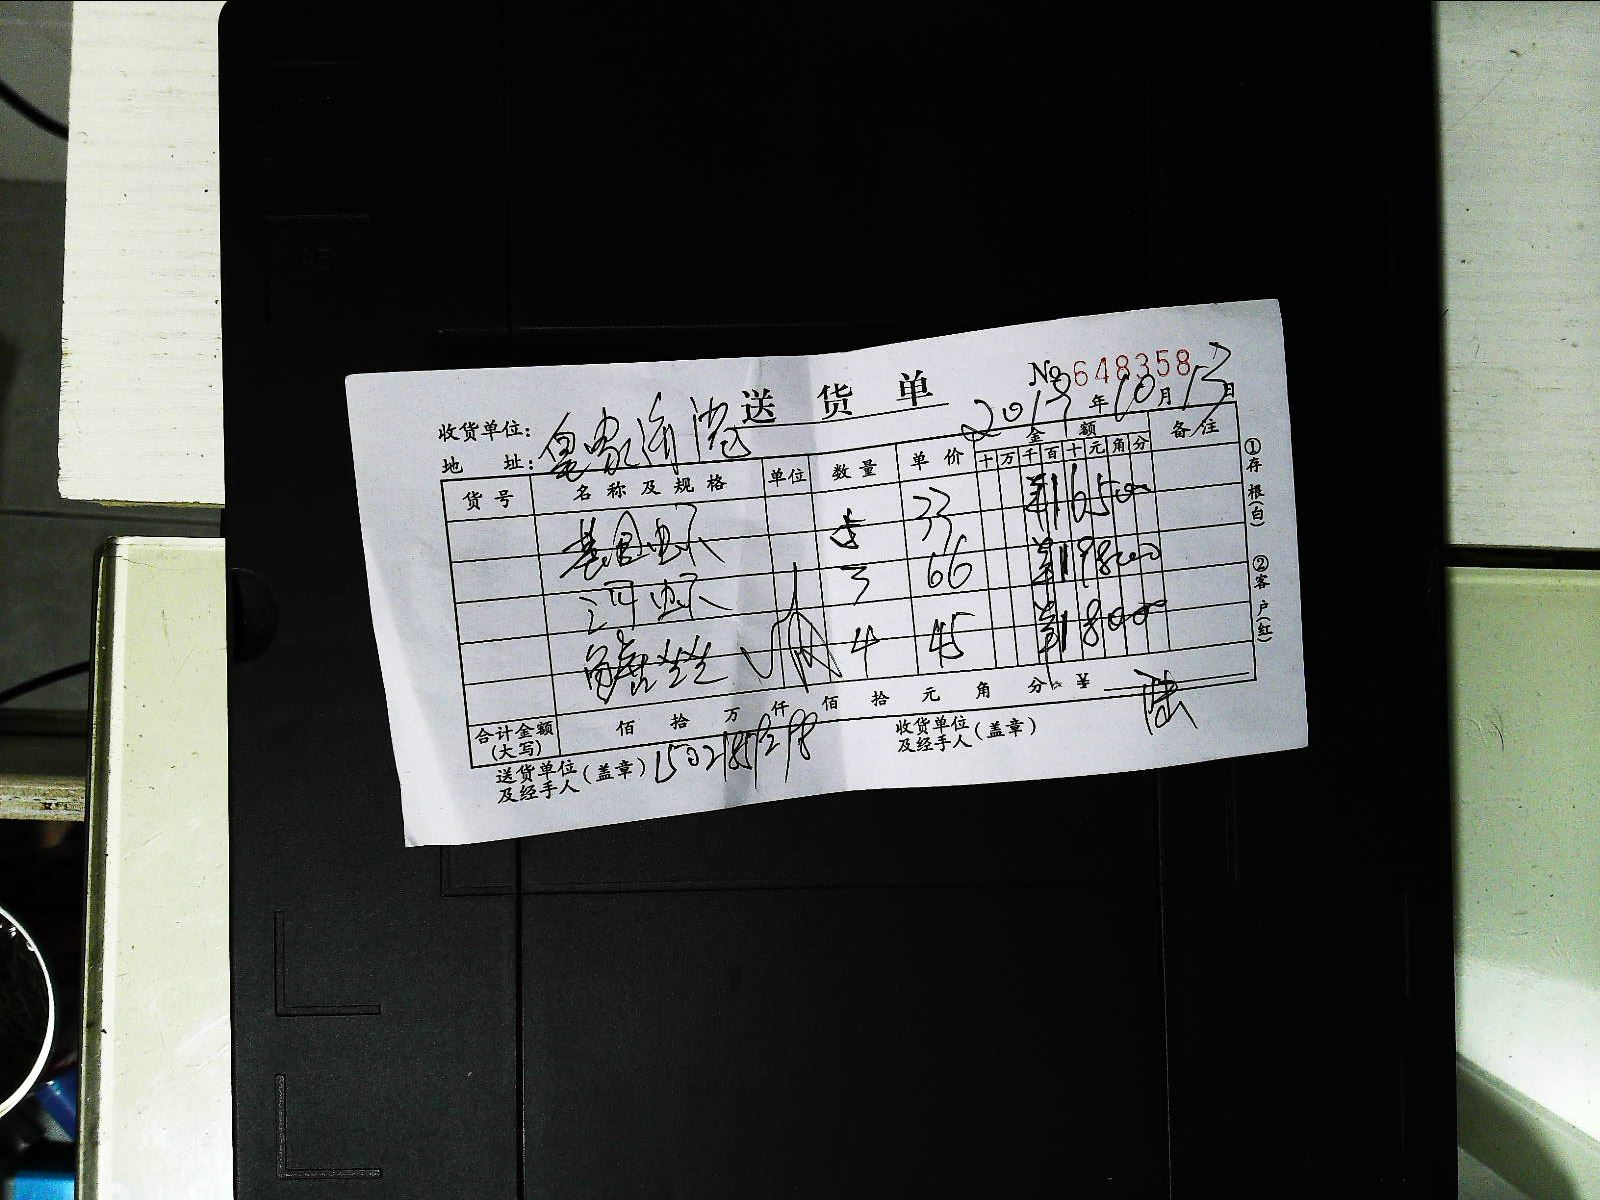 送货单
No 648358
收货单位: 皇家渔港
2019年10月13日
地 址:
货号 名称及规格 单位 数量 单价 金额 备注
十万千百十元角分
基围虾 5 33 ¥165.00
河虾 3 66 ¥198.00
4 45 ¥180.00
合计金额(大写) 佰 拾 万 仟 佰 拾 元 角 分 ¥
送货单位及经手人(盖章)
收货单位及经手人(盖章) 陆
①存根(白) ②客户(红)